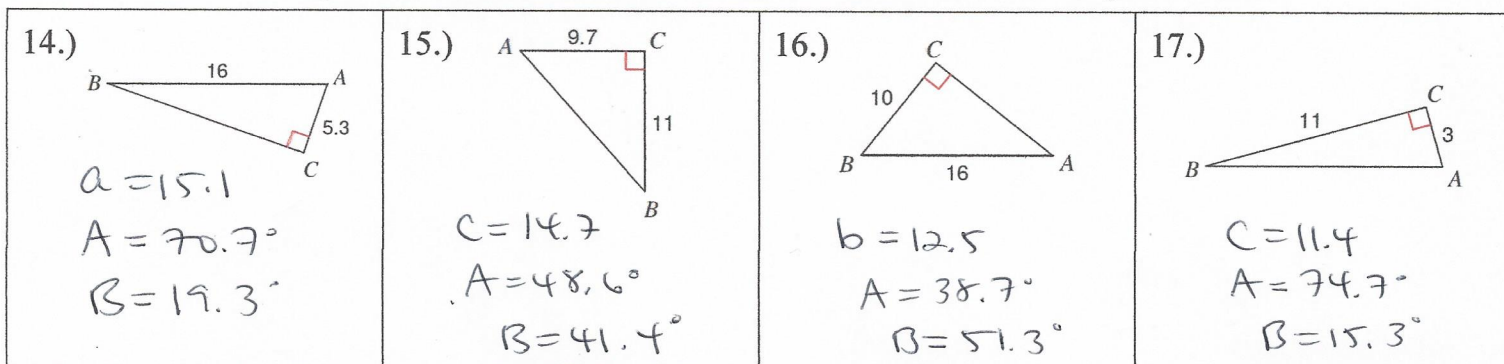 14.)
B
16
A
5.3
C
a = 15.1
A = 70.7°
B = 19.3°
15.)
A
9.7
C
11
B
C = 14.7
A = 48.6°
B = 41.4°
16.)
C
10
B
16
A
b = 12.5
A = 38.7°
B = 51.3°
17.)
C
11
3
B
A
C = 11.4
A = 74.7°
B = 15.3°